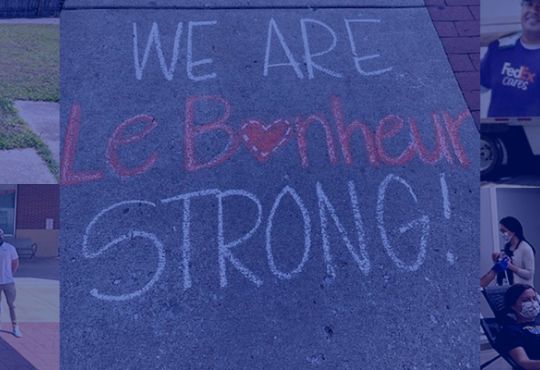 WE ARE
Le Bonheur
STRONG!
FedEx
Cares